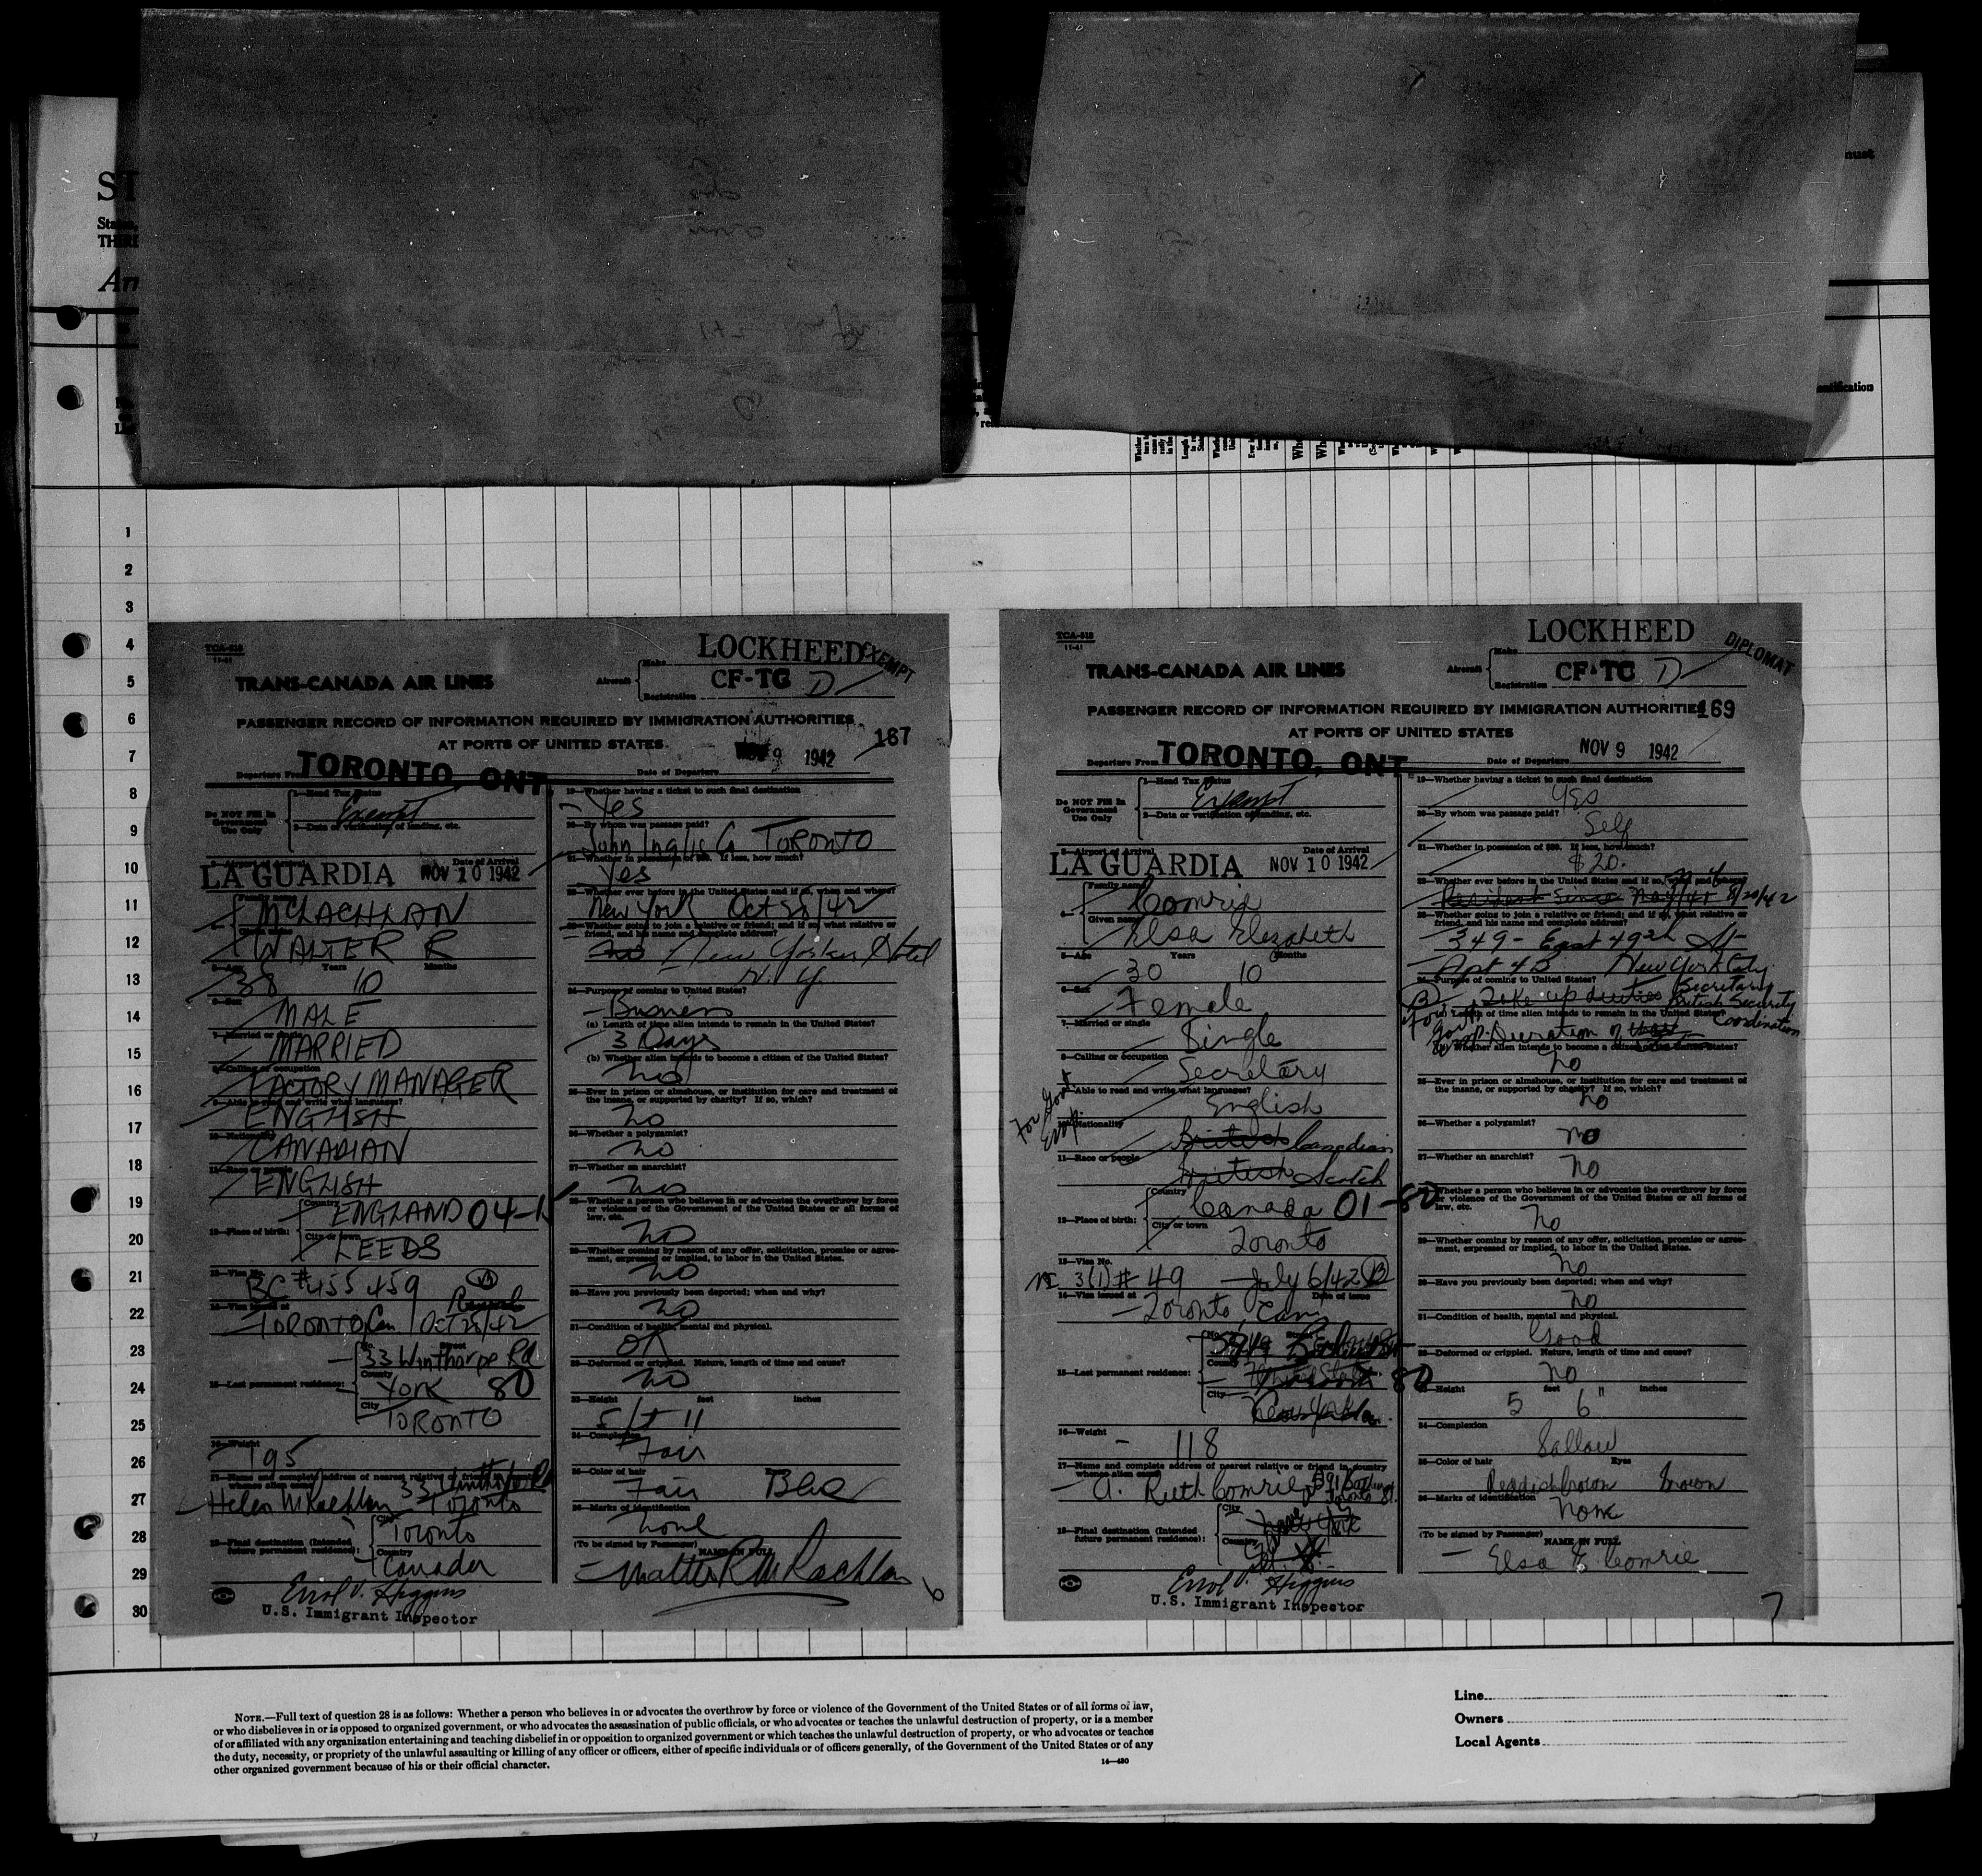 ST
State
THIRD
An
must
entification
1
2
3
4
5
6
7
8
9
10
11
12
13
14
15
16
17
18
19
20
21
22
23
24
25
26
27
28
29
30
TCA-518
11-41
LOCKHEED
EXEMPT
TRANS-CANADA AIR LINES
Aircraft Make
Registration CF-TC D
PASSENGER RECORD OF INFORMATION REQUIRED BY IMMIGRATION AUTHORITIES
AT PORTS OF UNITED STATES.
167
Departure From TORONTO, ONT.
Date of Departure NOV 9 1942
Do NOT Fill In Government Use Only
1—Head Tax Status
Exempt
2—Data or verification of landing, etc.
3—Airport of Arrival Date of Arrival
LA GUARDIA NOV 10 1942
Family name
McLACHLAN
Given name
WALTER R
5—Age Years Months
38 10
6—Sex
MALE
7—Married or single
MARRIED
8—Calling or occupation
FACTORY MANAGER
9—Able to read and write what languages?
ENGLISH
10—Nationality
CANADIAN
11—Race or people
ENGLISH
12—Place of birth: Country
ENGLAND 04-1
City or town
LEEDS
13—Visa No.
BC #455459
14—Visa issued at
TORONTO Can. Oct 28/42
15—Last permanent residence: No. Street
33 Winthorpe Rd
County
York 80
City
TORONTO
16—Weight
195
17—Name and complete address of nearest relative or friend in country whence alien came
Helen McLachlan 33 Winthorpe Rd Toronto
18—Final destination (Intended future permanent residence): City
Toronto
Country
Canada
Errol V. Higgins
U.S. Immigrant Inspector
19—Whether having a ticket to such final destination
Yes
20—By whom was passage paid?
John Inglis Co TORONTO
21—Whether in possession of $50. If less, how much?
Yes
22—Whether ever before in the United States and if so, when and where?
New York Oct 28/42
23—Whether going to join a relative or friend; and if so, what relative or
friend, and his name and complete address?
No New Yorker Hotel
N.Y.
24—Purpose of coming to United States?
Business
(a) Length of time alien intends to remain in the United States?
3 Days
(b) Whether alien intends to become a citizen of the United States?
No
25—Ever in prison or almshouse, or institution for care and treatment of
the insane, or supported by charity? If so, which?
No
26—Whether a polygamist?
No
27—Whether an anarchist?
No
28—Whether a person who believes in or advocates the overthrow by force
or violence of the Government of the United States or all forms of
law, etc.
No
29—Whether coming by reason of any offer, solicitation, promise or agree-
ment, expressed or implied, to labor in the United States.
No
30—Have you previously been deported; when and why?
No
31—Condition of health, mental and physical.
OK
32—Deformed or crippled. Nature, length of time and cause?
No
33—Height feet inches
5 ft 11
34—Complexion
Fair
35—Color of hair Eyes
Fair Blue
36—Marks of identification
None
(To be signed by Passenger) NAME IN FULL
Walter R McLachlan
6
TCA-518
11-41
LOCKHEED
DIPLOMAT
TRANS-CANADA AIR LINES
Aircraft Make
Registration CF-TC D
PASSENGER RECORD OF INFORMATION REQUIRED BY IMMIGRATION AUTHORITIES
169
AT PORTS OF UNITED STATES
Departure From TORONTO, ONT
Date of Departure NOV 9 1942
Do NOT Fill In Government Use Only
1—Head Tax Status
Exempt
2—Data or verification of landing, etc.
3—Airport of Arrival Date of Arrival
LA GUARDIA NOV 10 1942
Family name
Comrie
Given name
Elsa Elizabeth
5—Age Years Months
30 10
6—Sex
Female
7—Married or single
Single
8—Calling or occupation
Secretary
9—Able to read and write what languages?
English
For Govt Emp.
10—Nationality
British Canadian
11—Race or people
British Scotch
12—Place of birth: Country
Canada 01-80
City or town
Toronto
13—Visa No.
3(1) # 49 July 6/42 B
14—Visa issued at Date of issue
Toronto, Can
15—Last permanent residence: No. Street
County
United States 80
City
New York
16—Weight
118
17—Name and complete address of nearest relative or friend in country
whence alien came
A. Ruth Comrie Toronto
18—Final destination (Intended future permanent residence): City
New York
Country
Errol V. Higgins
U.S. Immigrant Inspector
19—Whether having a ticket to such final destination
Yes
20—By whom was passage paid?
Self
21—Whether in possession of $50. If less, how much?
$20.
22—Whether ever before in the United States and if so, when and where?
Resident Since May/41 8/20/42
23—Whether going to join a relative or friend; and if so, what relative or
friend, and his name and complete address?
349 - East 49th St
Apt 4D New York City
24—Purpose of coming to United States?
Take up duties Secretary British Security Coordination
(a) Length of time alien intends to remain in the United States?
Duration of War
(b) Whether alien intends to become a citizen of the United States?
No
25—Ever in prison or almshouse, or institution for care and treatment of
the insane, or supported by charity? If so, which?
No
26—Whether a polygamist?
No
27—Whether an anarchist?
No
28—Whether a person who believes in or advocates the overthrow by force
or violence of the Government of the United States or all forms of
law, etc.
No
29—Whether coming by reason of any offer, solicitation, promise or agree-
ment, expressed or implied, to labor in the United States.
No
30—Have you previously been deported; when and why?
No
31—Condition of health, mental and physical.
Good
32—Deformed or crippled. Nature, length of time and cause?
No
33—Height feet inches
5 6"
34—Complexion
Sallow
35—Color of hair Eyes
Reddish brown brown
36—Marks of identification
None
(To be signed by Passenger) NAME IN FULL
Elsa E Comrie
7
NOTE.—Full text of question 28 is as follows: Whether a person who believes in or advocates the overthrow by force or violence of the Government of the United States or of all forms of law,
or who disbelieves in or is opposed to organized government, or who advocates the assassination of public officials, or who advocates or teaches the unlawful destruction of property, or is a member
of or affiliated with any organization entertaining and teaching disbelief in or opposition to organized government or which teaches the unlawful destruction of property, or who advocates or teaches
the duty, necessity, or propriety of the unlawful assaulting or killing of any officer or officers, either of specific individuals or of officers generally, of the Government of the United States or of any
other organized government because of his or their official character.
14—430
Line
Owners
Local Agents